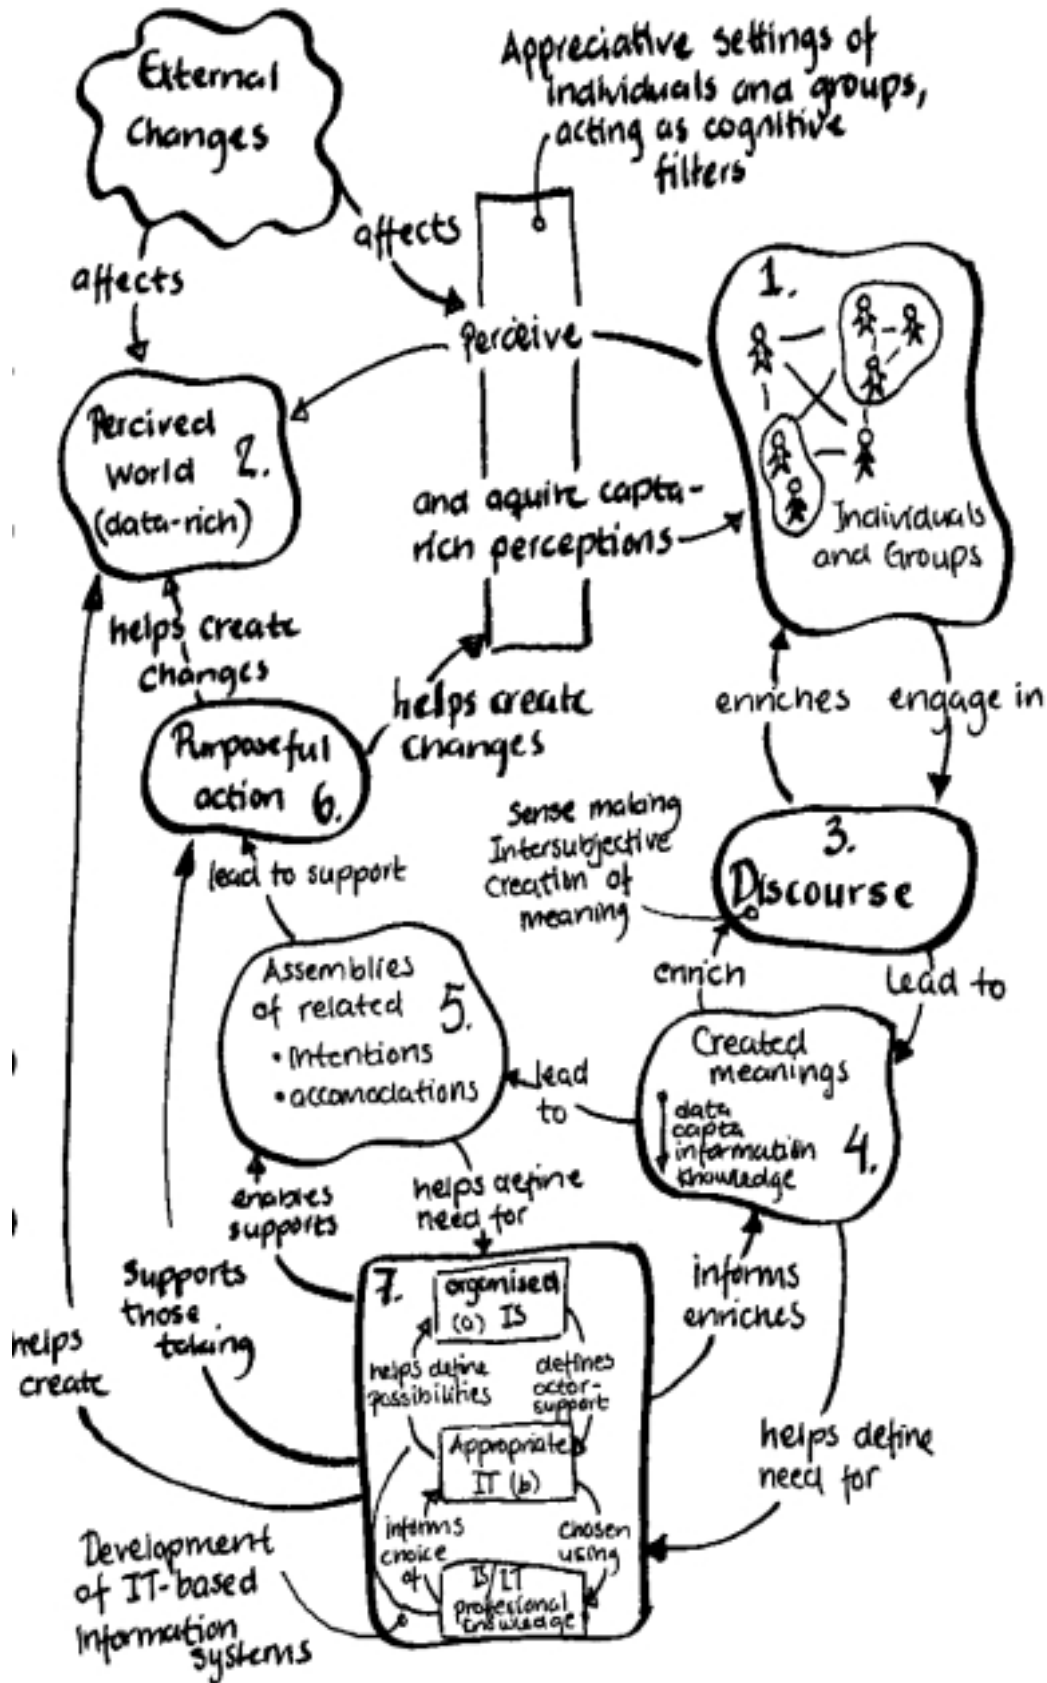 External
Changes
Appreciative settings of
individuals and groups,
acting as cognitive
filters
affects
affects
Perceive
1.
Individuals
and Groups
Percived
World 2.
(data-rich)
and aquire capta-
rich perceptions
helps create
changes
helps create
changes
enriches
engage in
Purposeful
action 6.
Sense making
Intersubjective
Creation of
meaning
3.
Discourse
lead to support
enrich
Lead to
Assemblies
of related 5.
• intentions
• accomodations
lead
to
Created
meanings
data
capta
information
knowledge
4.
enables
supports
helps define
need for
informs
enriches
Supports
those
taking
helps
create
7.
organised
(a) IS
helps define
possibilities
defines
actor-
support
Appropriate
IT (b)
informs
choice
of
chosen
using
IS/IT
profesional
knowledge
helps define
need for
Development
of IT-based
information
systems